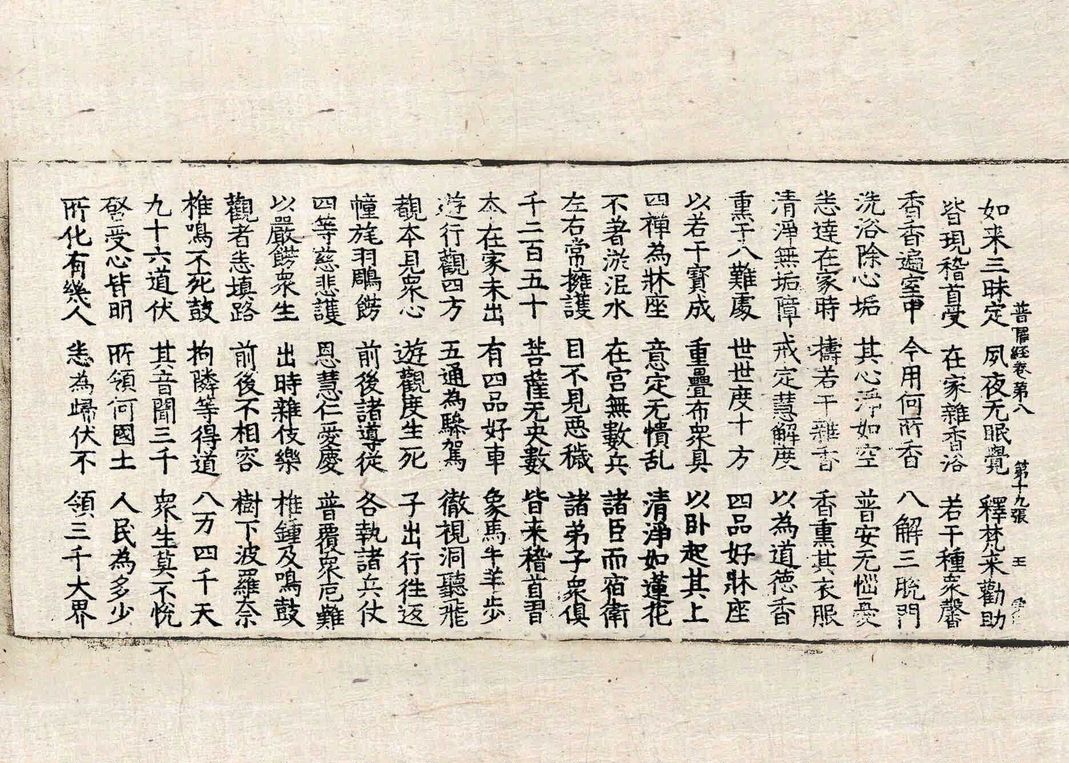 如来三昧定　夙夜无眠覺　釋梵来勸助
普曜經卷第八　第十九張　王
皆現稽首受　在家雜香浴　若干種衆馨
香香遍室中　今用何所香　八解三脫門
洗浴除心垢　其心淨如空　普安无惱憂
悉達在家時　擣若干雜香　香熏其衣服
清淨無垢障　戒定慧解度　以為道德香
熏于八難處　世世度十方　四品好牀座
以若干寶成　重疊布衆具　以卧起其上
四禪為牀座　意定无憒乱　清淨如蓮花
不著淤泥水　在宮無數兵　諸臣而宿衛
左右常擁護　目不見惡穢　諸弟子衆俱
千二百五十　菩薩无央數　皆来稽首習
本在家未出　有四品好車　象馬牛羊步
遊行觀四方　五通為驂駕　徹視洞聽飛
觀本見衆心　遊觀度生死　子出行往返
幢旄羽鵰餝　前後諸導從　各執諸兵仗
四等慈悲護　恩慧仁愛慶　普覆衆厄難
以嚴餝衆生　出時雜伎樂　椎鍾及鳴鼓
觀者悉填路　前後不相容　樹下波羅奈
椎鳴不死鼓　拘隣等得道　八万四千天
九十六道伏　其音聞三千　衆生莫不悅
啓受心皆明　所領何國土　人民為多少
所化有幾人　悉為歸伏不　領三千大界